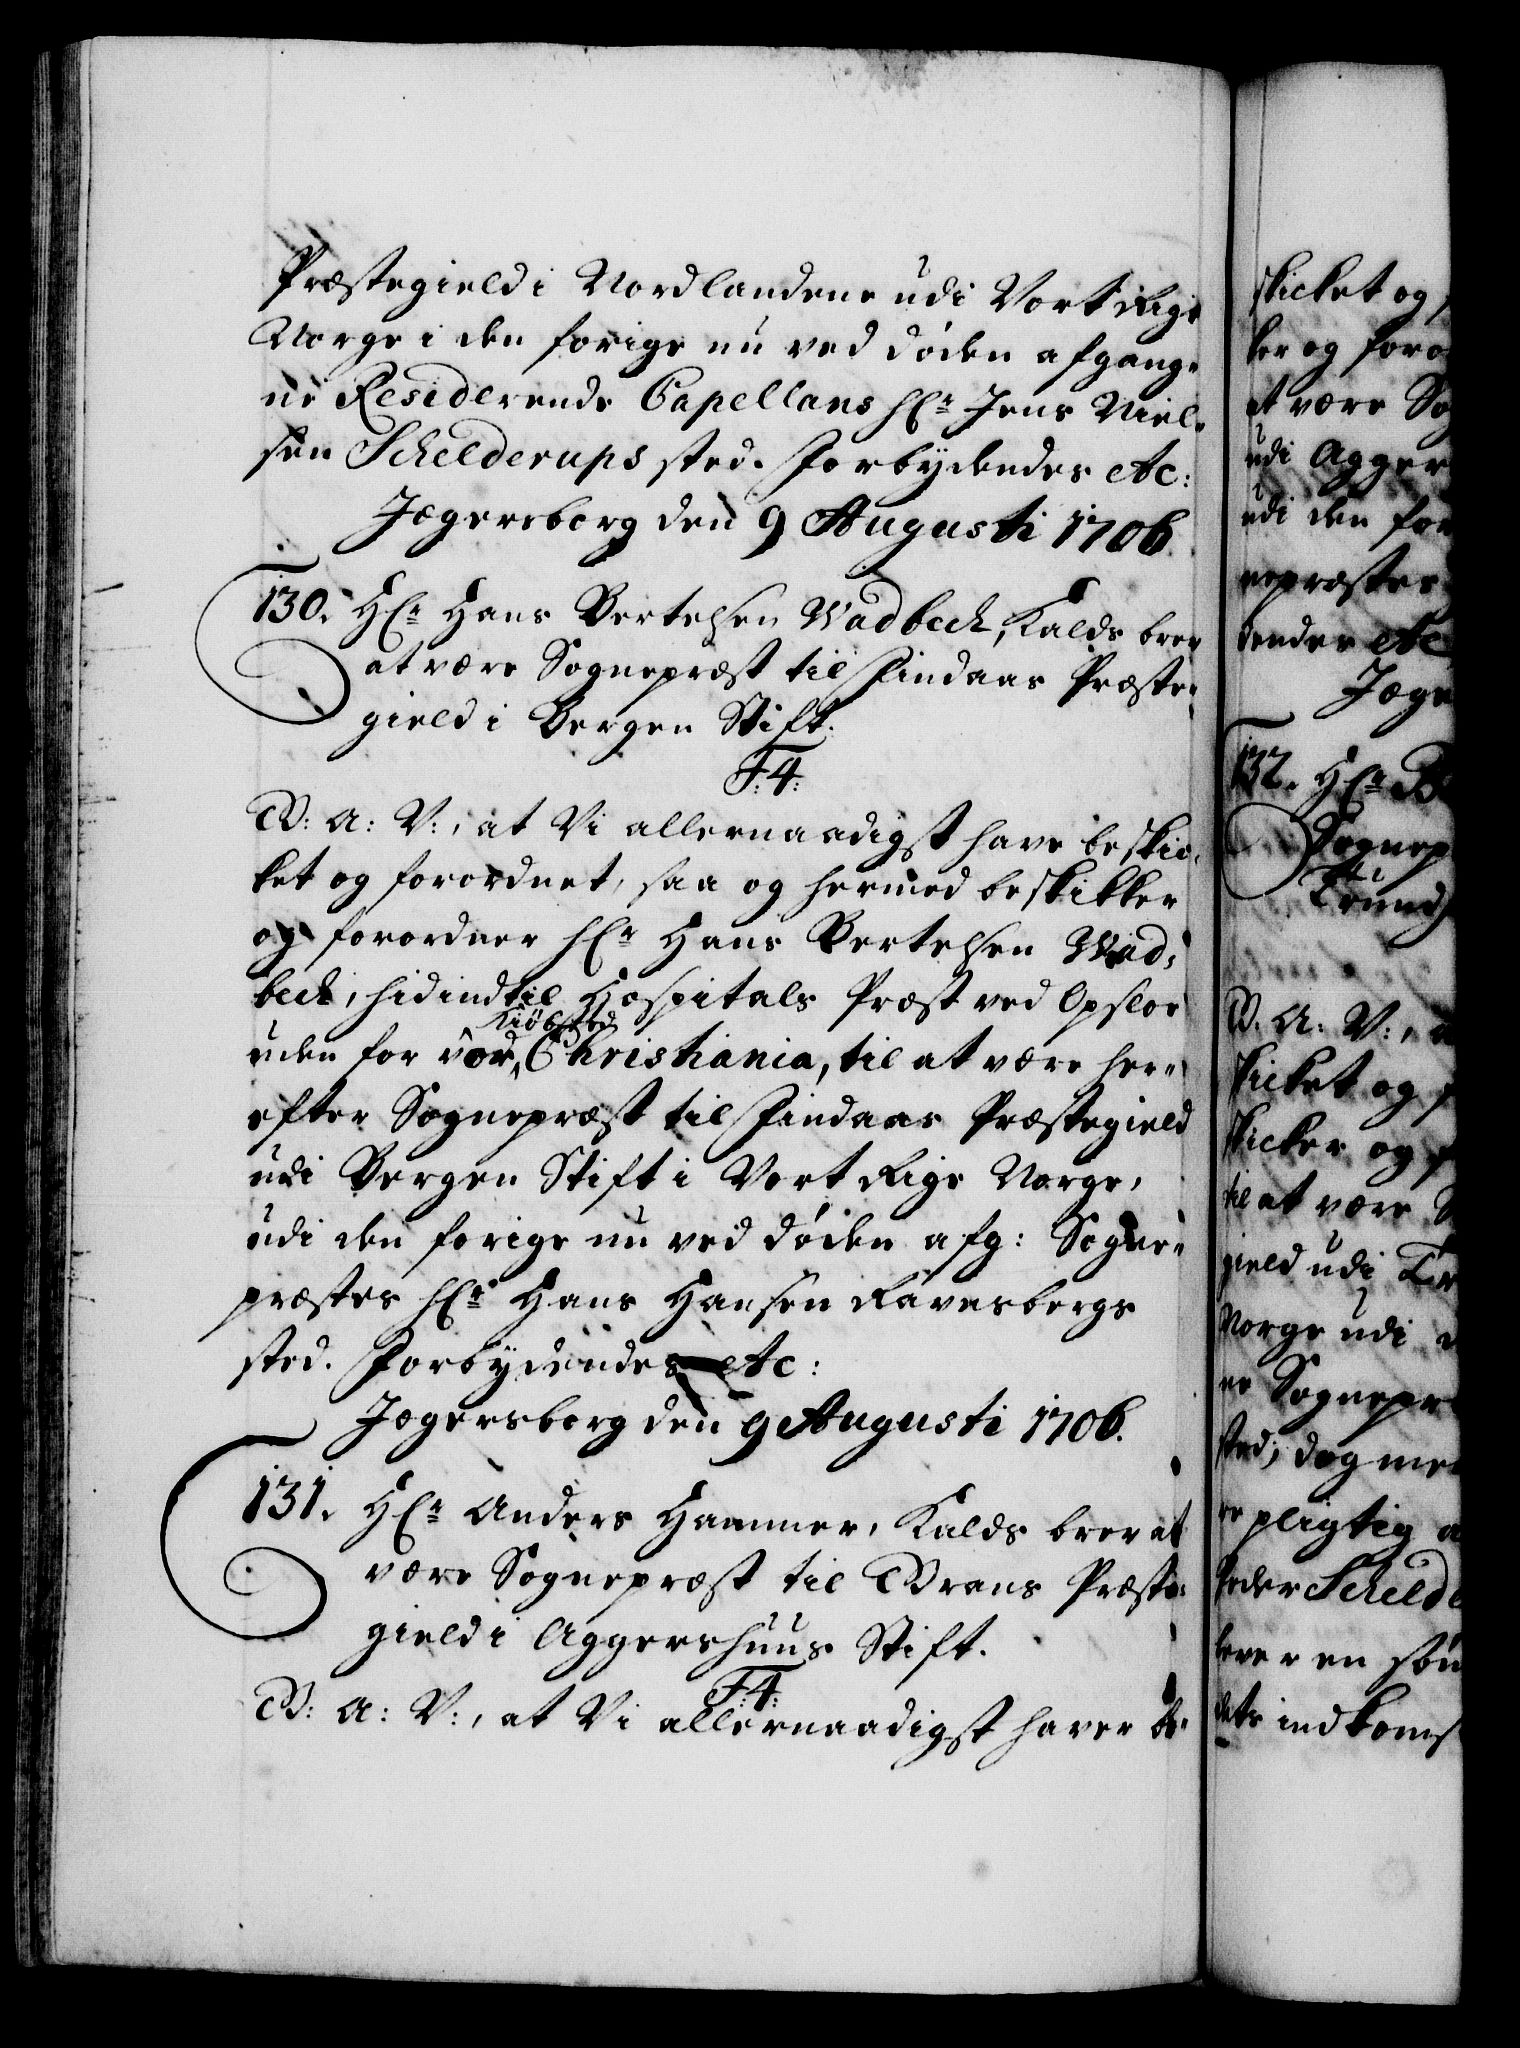 Præstegield i Nordlandene udi Vort Rige
Norge i den forige nu ved døden afgang-
ne Residerende Capellans hr. Jens Niel-
sen Schelderups sted. Forbydendes etc:
Jægersborg den 9 Augusti 1706.
130. Hr. Hans Bertelsen Wadbech, Kalds brev
at være Sognepræst til Lindaas Præste-
gield i Bergen Stift.
F:4:
B: A: V:, at Vi allernaadigst have beskic-
ket og forordnet, saa og hermed beskikker
og forordner hr. Hans Bertelsen Wad-
bech, hidindtil Hospitals Præst ved Opsloe
uden for vor Kiøbsted Christiania, til at være her-
efter Sognepræst til Lindaas Præstegield
udi Bergen Stift i Vort Rige Norge,
udi den forige nu ved døden afg: Sogne-
præstes hr. Hans Hansen Ravnsbergs
sted. Forbydendes etc:
Jægersborg den 9 Augusti 1706.
131. Hr. Anders Hammer, Kalds brev at
være Sognepræst til Grans Præste-
gield i Aggershuus Stift.
F:4:
B: A: V:, at Vi allernaadigst haver be-
skicket og
ker og foror
at være Sog
udi Agger
udi den for
nepræstes
dendes etc
Jæge
132. Hr. B
Sognep
Trund
B: A: V:, a
skicket og f
skicker og f
til at være S
gield udi Tr
Norge udi d
ne Sognepr
sted; dog me
re pligtig a
Peder Scheld
lever en søn
dets indkoms